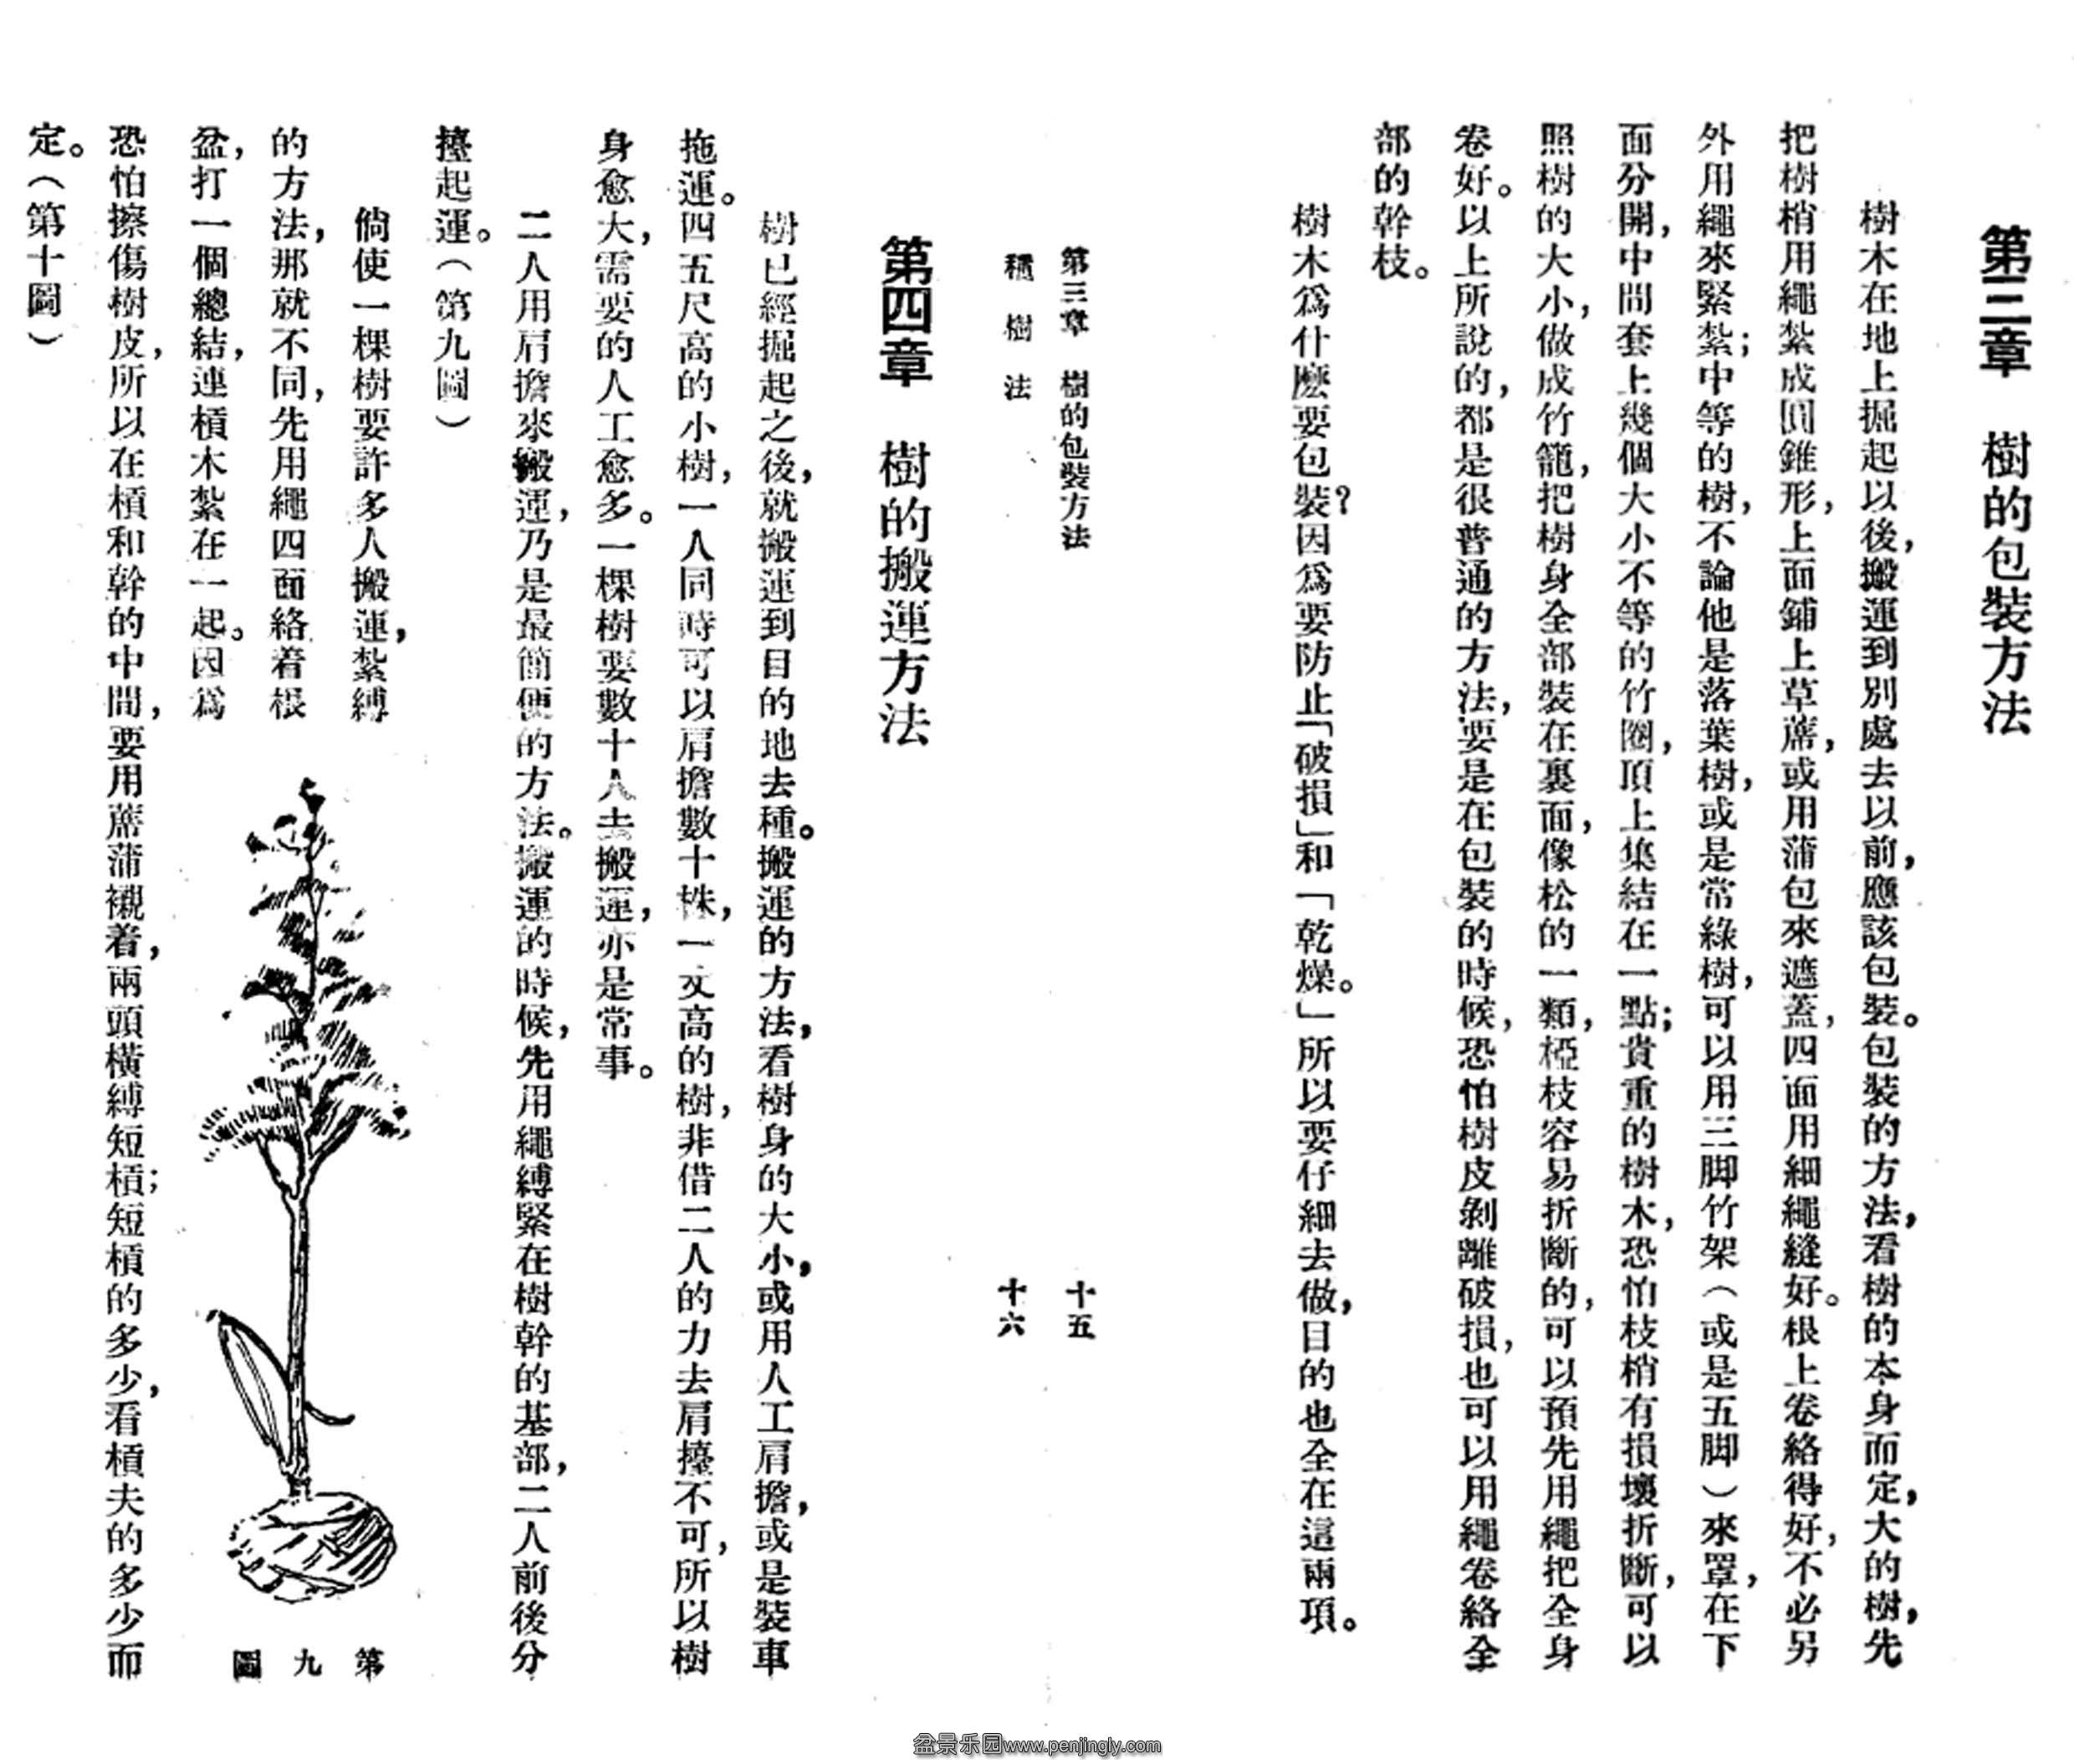 第三章　樹的包裝方法
樹木在地上掘起以後，搬運到別處去以前，應該包裝。包裝的方法，看樹的本身而定，大的樹，先
把樹梢用繩紮成圓錐形，上面鋪上草蓆，或用蒲包來遮蓋，四面用細繩縫好。根上卷絡得好，不必另
外用繩來緊紮；中等的樹，不論他是落葉樹，或是常綠樹，可以用三脚竹架（或是五脚）來罩，在下
面分開，中間套上幾個大小不等的竹圈，頂上集結在一點；貴重的樹木，恐怕枝梢有損壞折斷，可以
照樹的大小，做成竹籠，把樹身全部裝在裏面，像松的一類，椏枝容易折斷的，可以預先用繩把全身
卷好。以上所說的，都是很普通的方法，要是在包裝的時候，恐怕樹皮剝離破損，也可以用繩卷絡全
部的幹枝。
樹木爲什麽要包裝？因爲要防止「破損」和「乾燥。」所以要仔細去做，目的也全在這兩項。
第三章　樹的包裝方法　十五
種樹法　十六
第四章　樹的搬運方法
樹已經掘起之後，就搬運到目的地去種。搬運的方法，看樹身的大小，或用人工肩擔，或是裝車
拖運。四五尺高的小樹，一人同時可以肩擔數十株，一丈高的樹，非借二人的力去肩擡不可，所以樹
身愈大，需要的人工愈多。一棵樹要數十人去搬運，亦是常事。
二人用肩擔來搬運，乃是最簡便的方法。搬運的時候，先用繩縛緊在樹幹的基部，二人前後分
擡起運。（第九圖）
倘使一棵樹要許多人搬運，紮縛
的方法，那就不同，先用繩四面絡着根
盆，打一個總結，連槓木紮在一起。因爲
恐怕擦傷樹皮，所以在槓和幹的中間，要用蓆蒲襯着，兩頭橫縛短槓；短槓的多少，看槓夫的多少而
定。（第十圖）
第九圖
盆景乐园www.penjingly.com